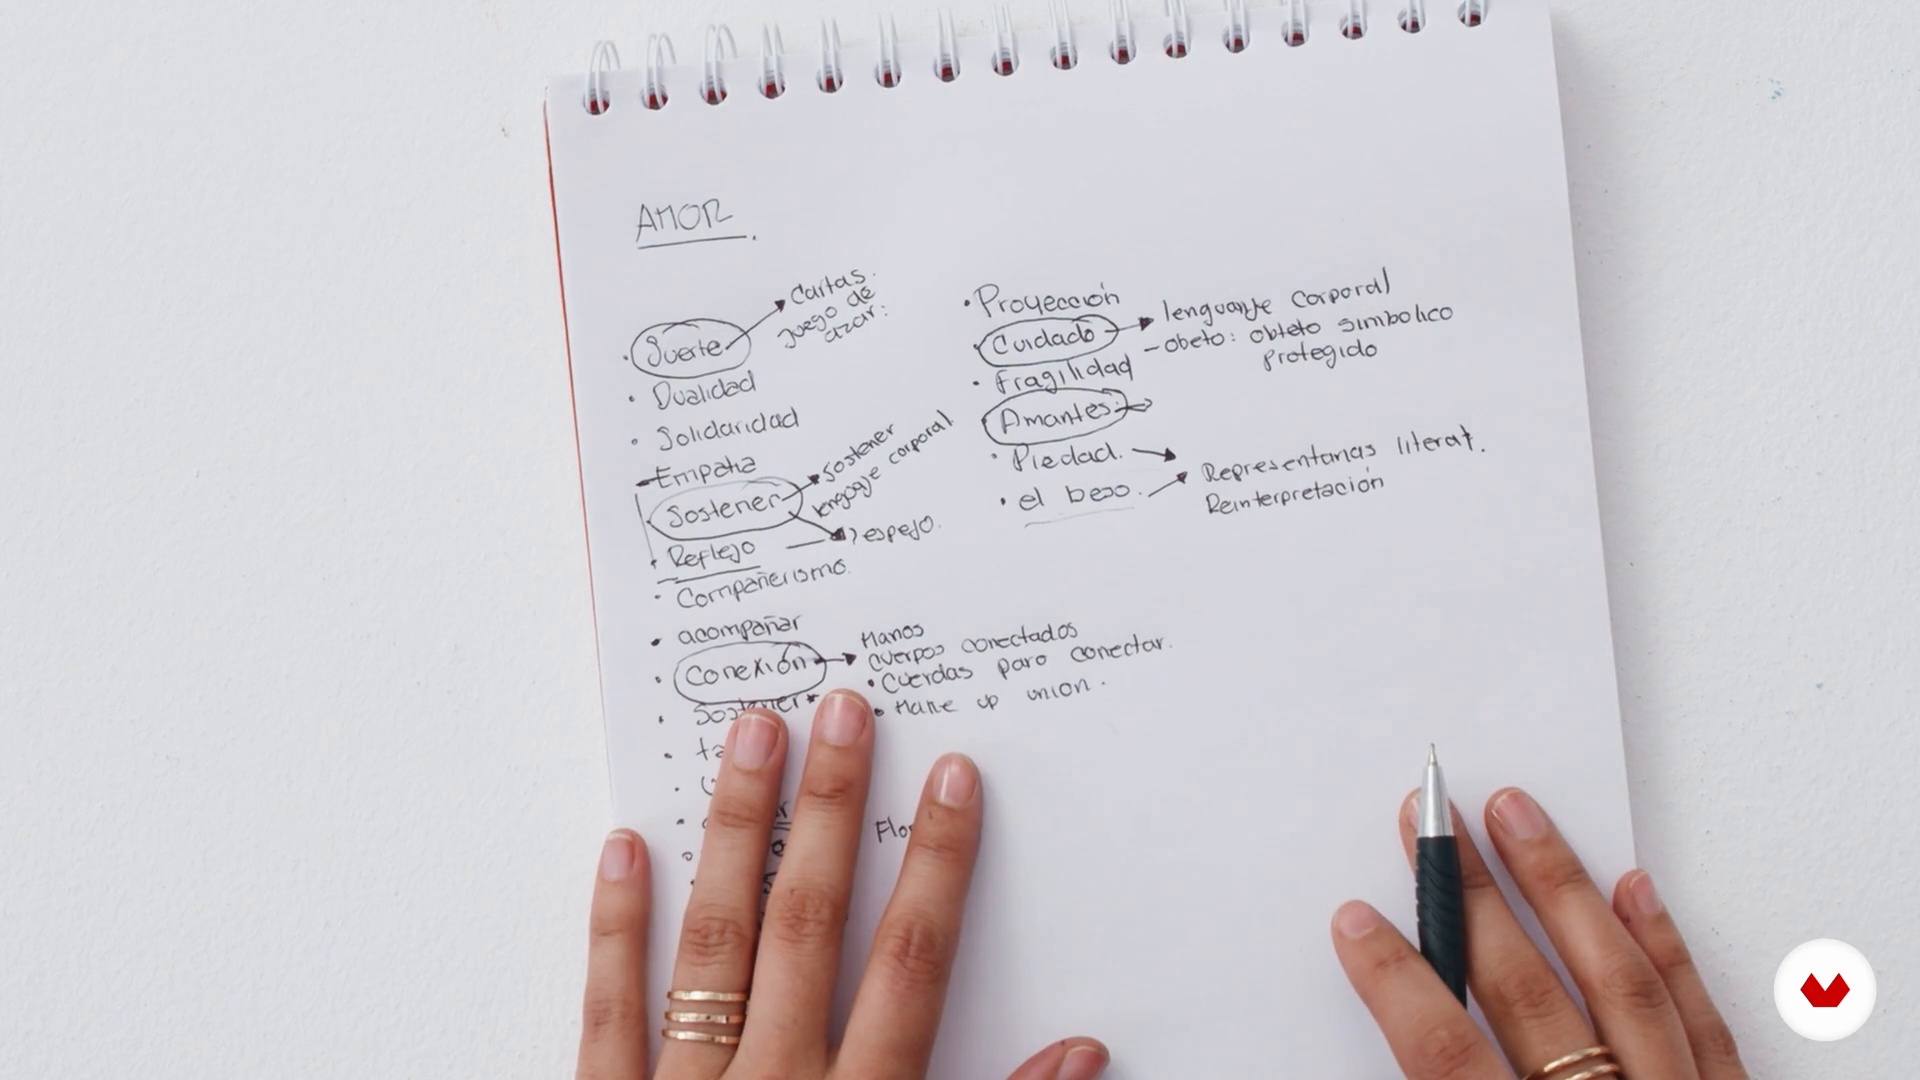 AMOR
Suerte
Cartas.
Juego de
azar:
Dualidad
Solidaridad
Empatia
Sostener
Sostener
lenguaje corporal
Reflejo
espejo.
Compañerismo.
acompañar
Conexión
Manos
cuerpos conectados
Cuerdas para conectar.
Make up union.
Sostener
Flo
Proyección
Cuidado
lenguanje Corporal
- obeto: obteto simbolico
protegido
Fragilidad
Amantes:
Piedad.
el beso.
Representarlas literat.
Reinterpretación